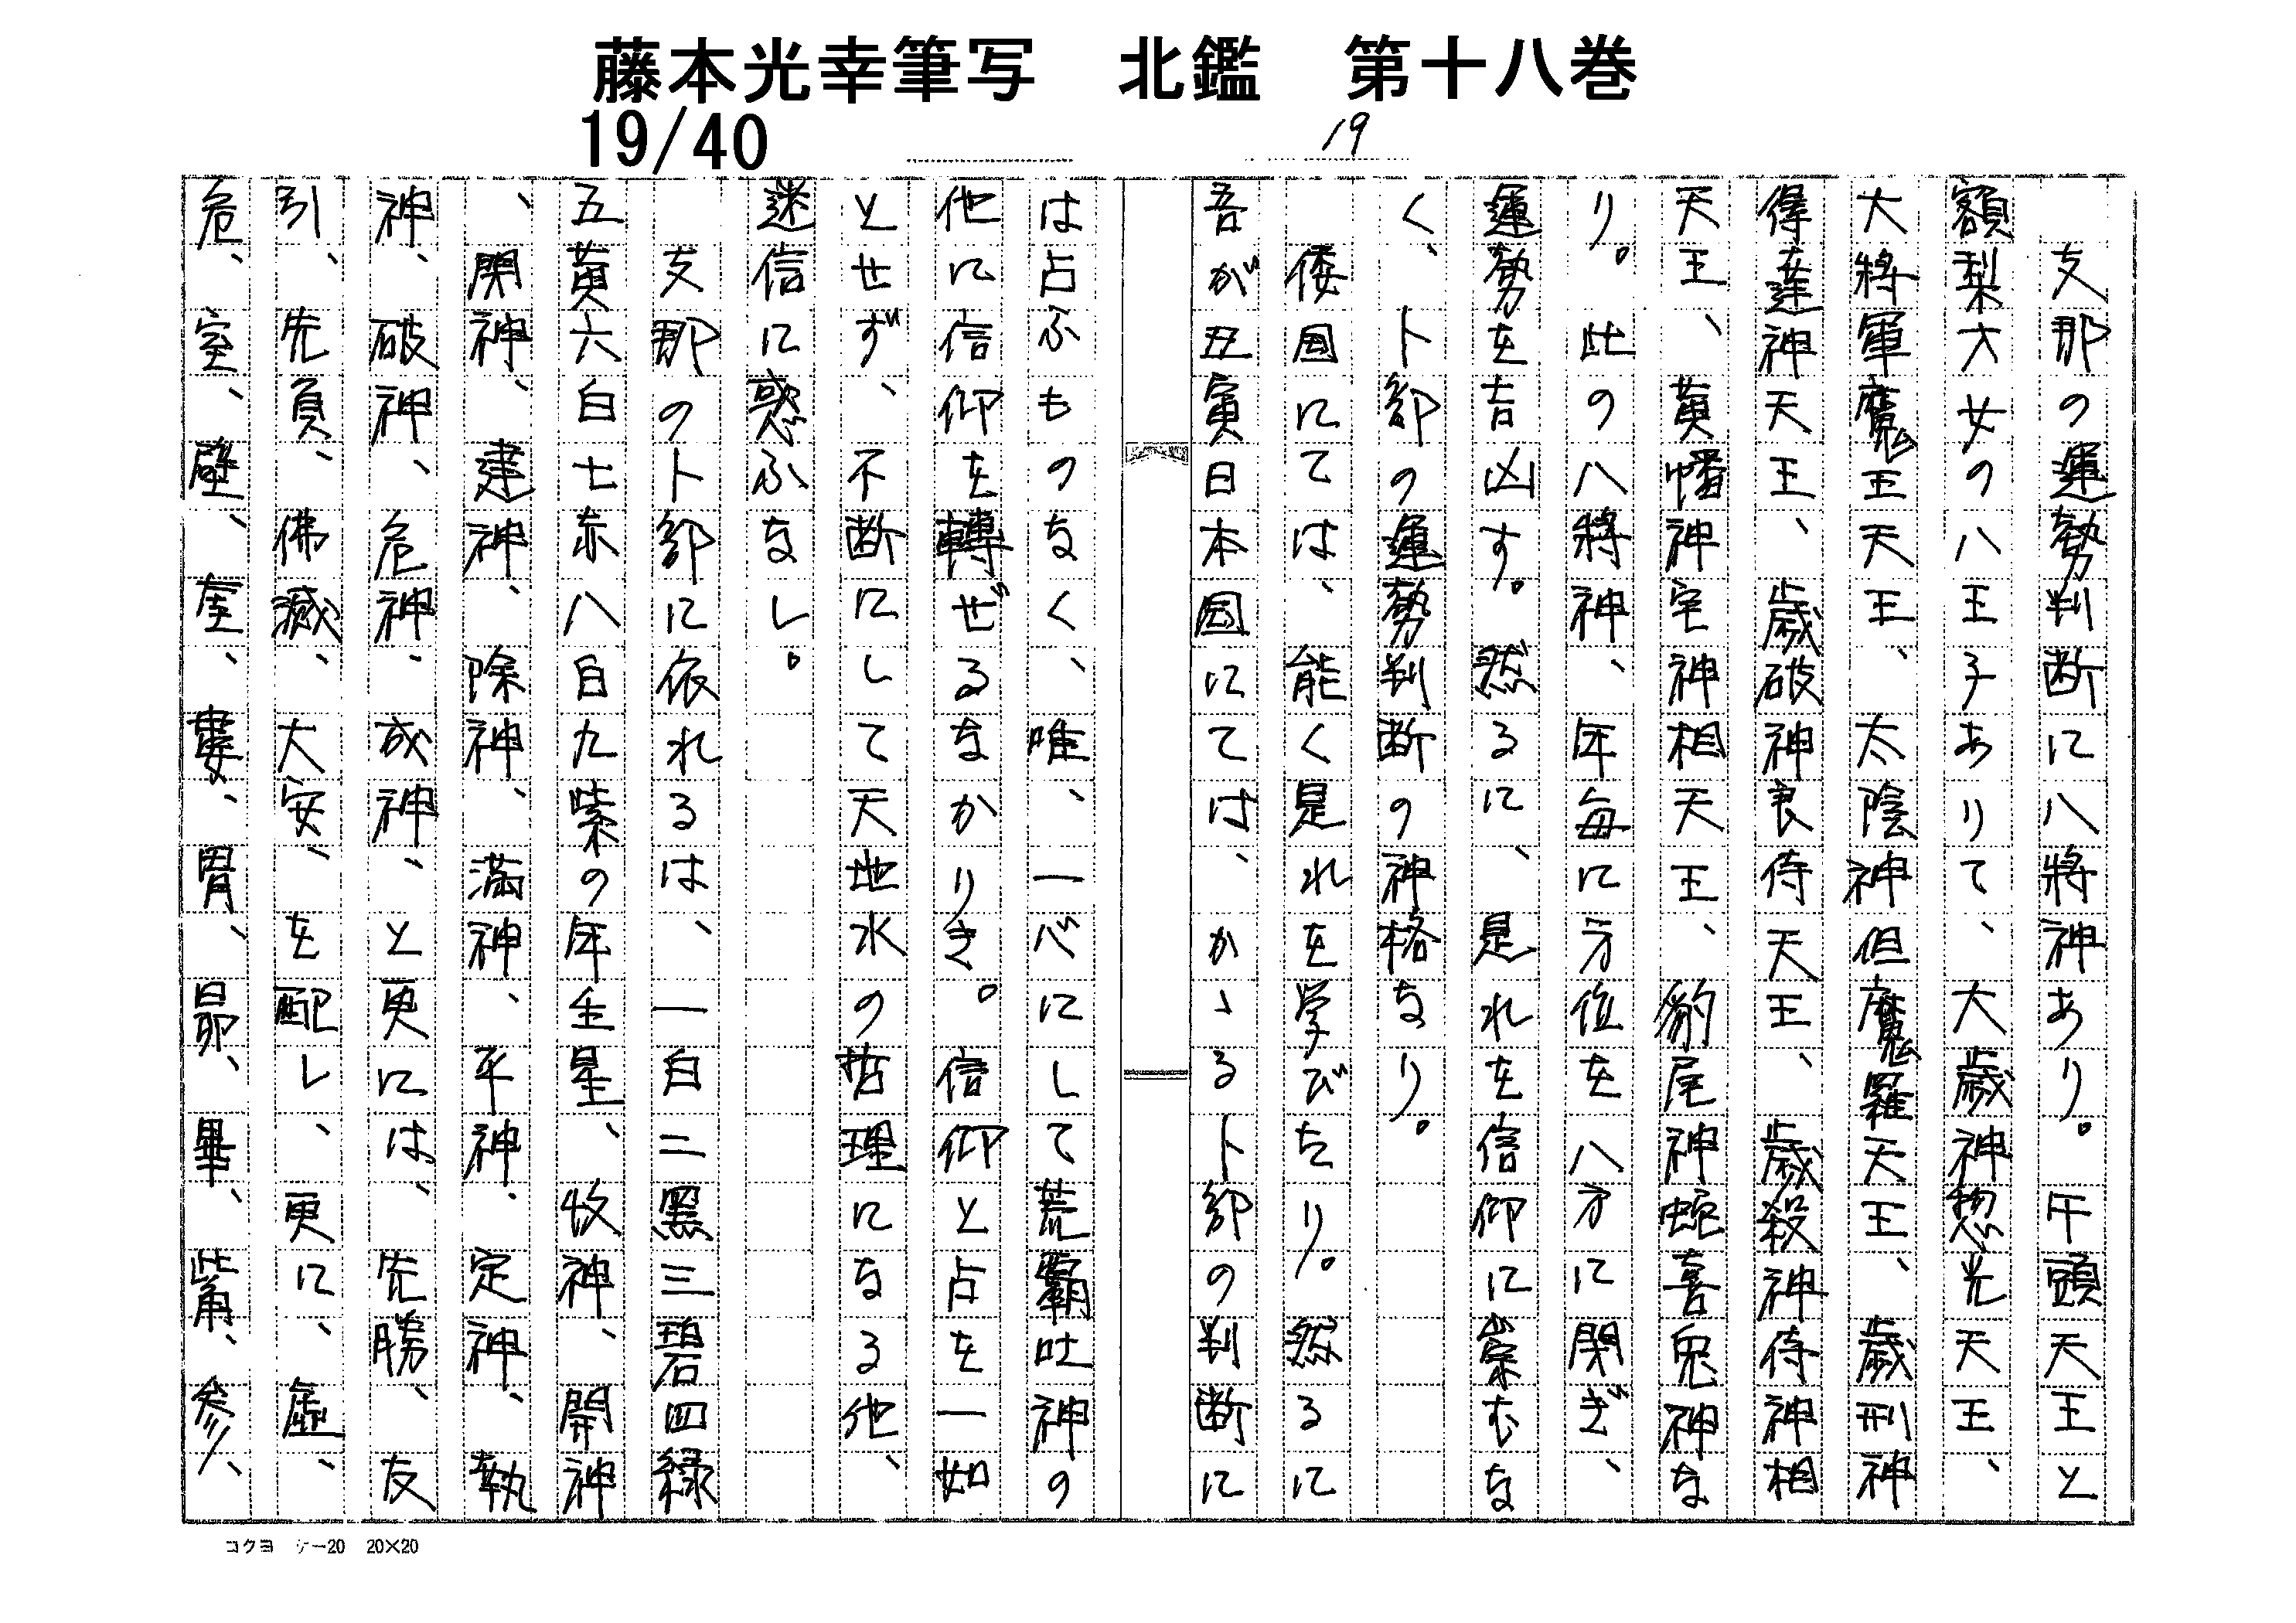 藤本光幸筆写　北鑑　第十八巻
19/40
19
支那の運勢判断に八將神あり。午頭天王と
額梨大女の八王子ありて、大歳神惣光天王、
大將軍魔王天王、太陰神但魔羅天王、歳刑神
得達神天王、歳破神良侍天王、歳殺神侍神相
天王、黄幡神宅神相天王、豹尾神蛇喜鬼神な
り。此の八將神、年毎に方位を八方に閉ぎ、
運勢を吉凶す。然るに、是れを信仰に崇むな
く、卜部の運勢判断の神格なり。
倭国にては、能く是れを学びたり。然るに
吾が丑寅日本国にては、かゝる卜部の判断に
は占ふものなく、唯、一バにして荒覇吐神の
他に信仰を轉ぜるなかりき。信仰と占を一如
とせず、不断にして天地水の哲理になる他、
迷信に惑ふなし。
支那の卜部に依れるは、一白二黒三碧四緑
五黄六白七赤八白九紫の年全星、收神、開神
、閉神、建神、除神、満神、平神、定神、執
神、破神、危神、成神、と更には、先勝、友
引、先負、佛滅、大安、を配し、更に、虚、
危、室、壁、奎、婁、胃、昴、畢、觜、参、
コクヨ　ケー20　20×20